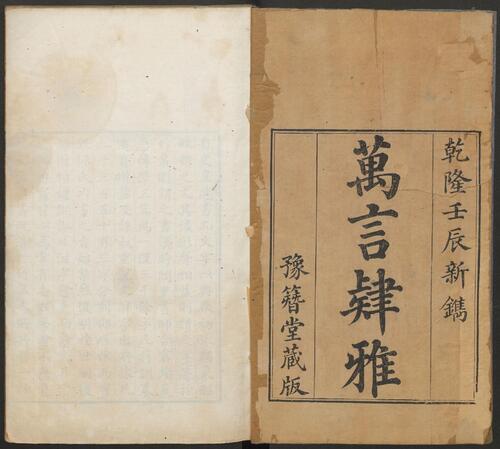 乾隆壬辰新鐫
萬言肄雅
豫簪堂藏版